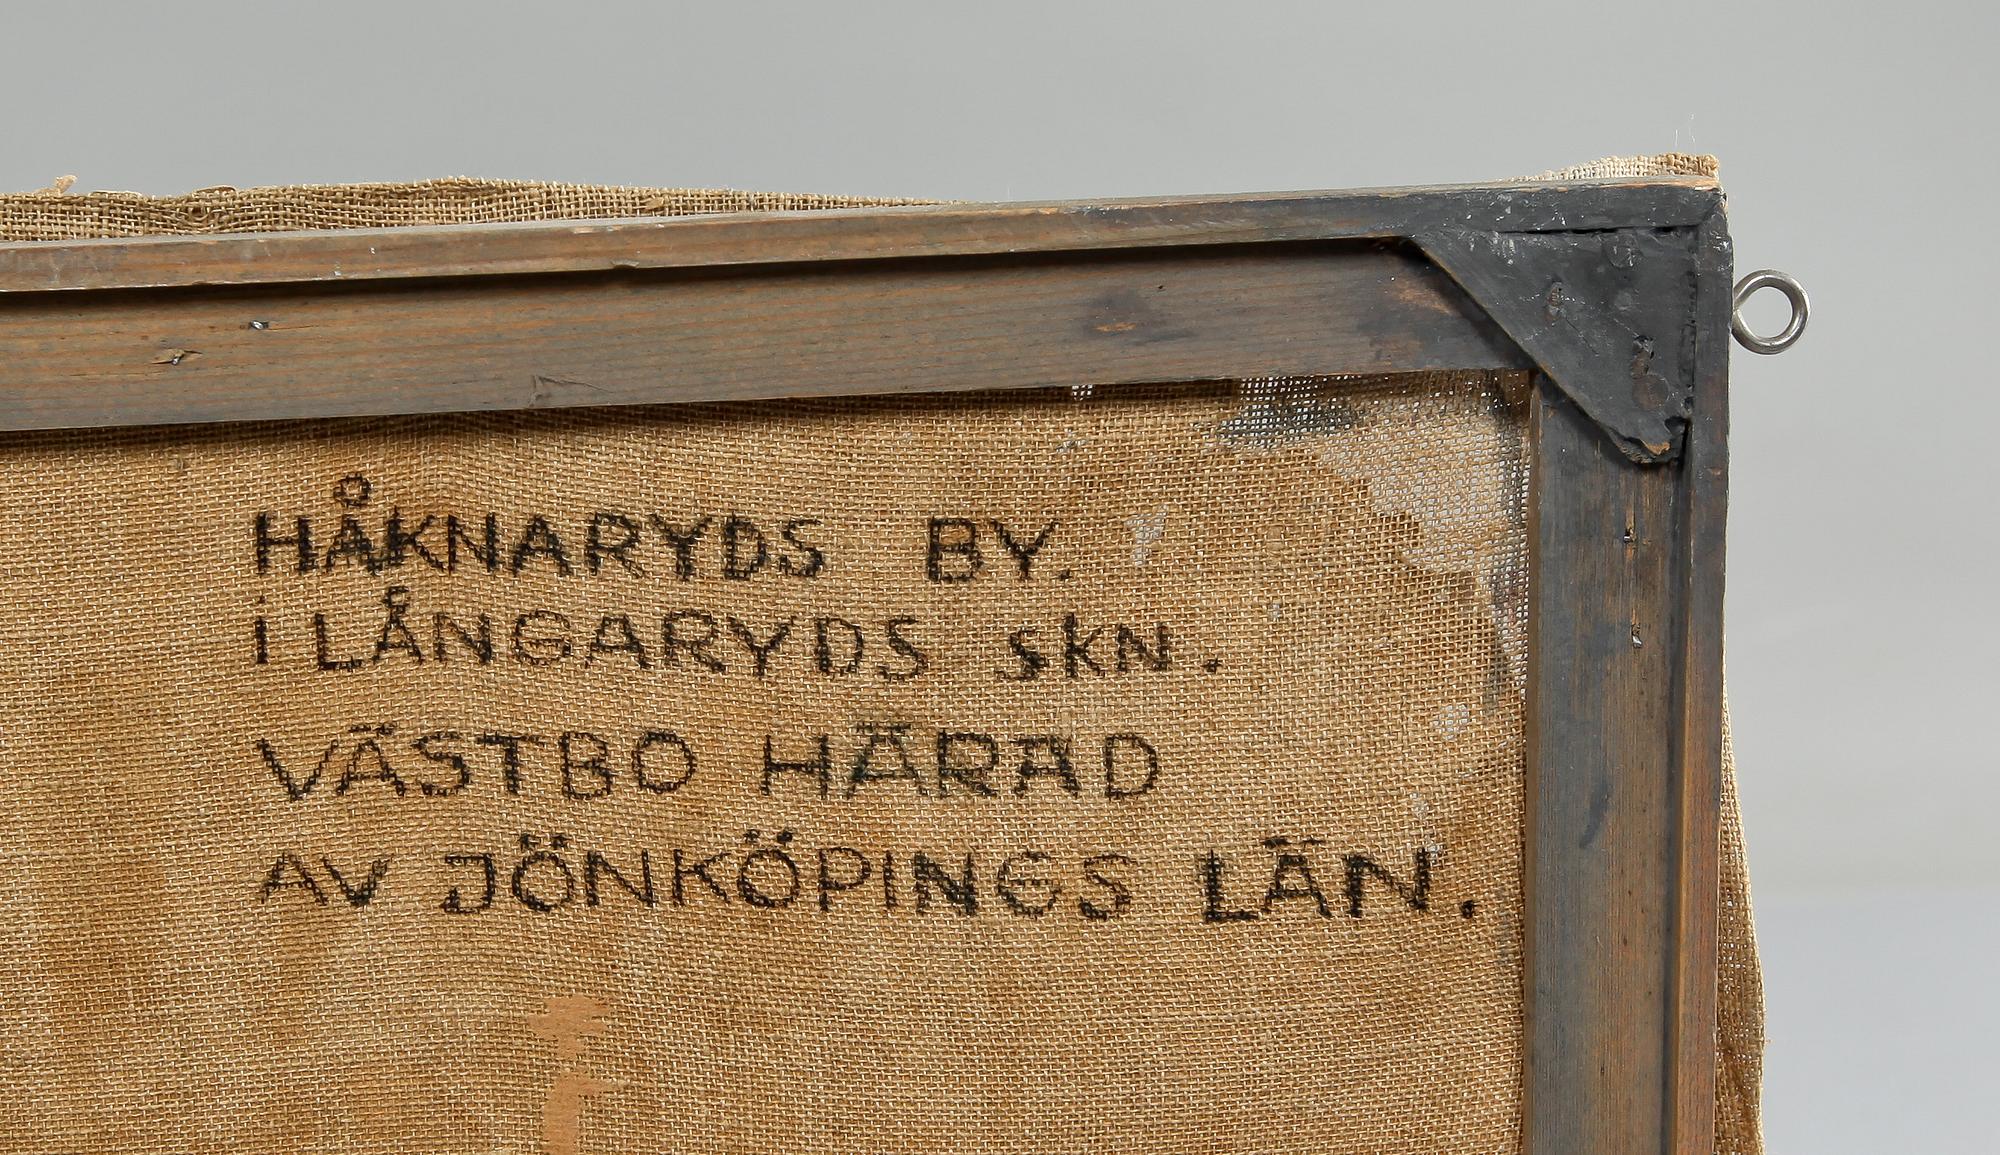 HÅKNARYDS BY.
i LÅNGARYDS SKN.
VÄSTBO HÄRAD
AV JÖNKÖPINGS LÄN.